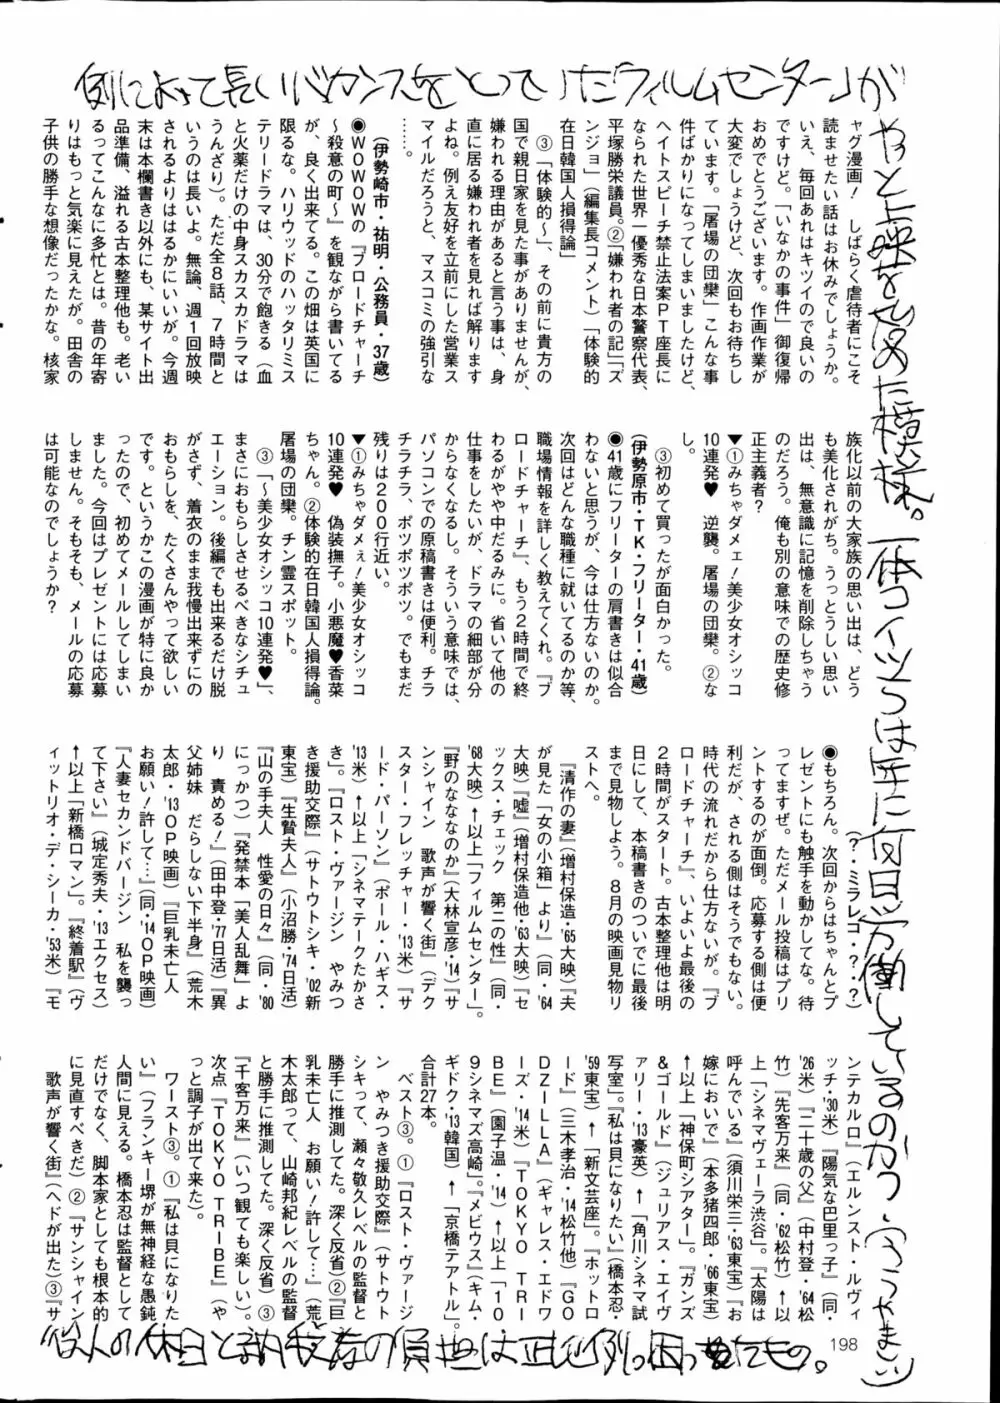 例によって長いバカンスをとっていた「フィルムセンター」が
やっと上映を始めた模様。一体コイツらは年に何日労働しているのか？（うらやましい）
役人の休日と納税者の負担は正比例っ。困ったもの。
ャグ漫画！　しばらく虐待者にこそ
読ませたい話はお休みでしょうか。
いえ、毎回あれはキツイので良いの
ですけど。「いなかの事件」御復帰
おめでとうございます。作画作業が
大変でしょうけど、次回もお待ちし
ています。「屠場の団欒」こんな事
件ばかりになってしまいましたけど、
ヘイトスピーチ禁止法案PT座長に
なられた世界一優秀な日本警察代表、
平塚勝栄議員。②「嫌われ者の記」「ズ
ンジョ」（編集長コメント）「体験的
在日韓国人損得論」
　③「体験的〜」、その前に貴方の
国で親日家を見た事がありませんが、
嫌われる理由があると言う事は、身
直に居る嫌われ者を見れば解ります
よね。例え友好を立前にした営業ス
マイルだろうと、マスコミの強引な
……。
（伊勢崎市・祐明・公務員・37歳）
◉WOWOWの『ブロードチャーチ
〜殺意の町〜』を観ながら書いてる
が、良く出来てる。この畑は英国に
限るな。ハリウッドのハッタリミス
テリードラマは、30分で飽きる（血
と火薬だけの中身スカスカドラマは
うんざり）。ただ全8話、7時間と
いうのは長いよ。無論、週1回放映
されるよりははるかにいいが。今週
末は本欄書き以外にも、某サイト出
品準備、溢れる古本整理他も。老い
るってこんなに多忙とは。昔の年寄
りはもっと気楽に見えたが。田舎の
子供の勝手な想像だったかな。核家
族化以前の大家族の思い出は、どう
も美化されがち。うっとうしい思い
出は、無意識に記憶を削除しちゃう
のだろう。俺も別の意味での歴史修
正主義者？
▼①みちゃダメェ！美少女オシッコ
10連発♥　逆襲。屠場の団欒。②な
し。
　③初めて買ったが面白かった。
（伊勢原市・TK・フリーター・41歳）
◉41歳にフリーターの肩書きは似合
わないと思うが、今は仕方ないのか。
次回はどんな職種に就いてるのか等、
職場情報を詳しく教えてくれ。『ブ
ロードチャーチ』、もう2時間で終
わるがやや中だるみに。省いて他の
仕事をしたいが、ドラマの細部が分
からなくなるし。そういう意味では、
パソコンでの原稿書きは便利。チラ
チラチラ、ポツポツポツ。でもまだ
残りは200行近い。
▼①みちゃダメぇ！美少女オシッコ
10連発♥　偽装撫子。小悪魔♥香菜
ちゃん。②体験的在日韓国人損得論。
屠場の団欒。チン霊スポット。
　③「〜美少女オシッコ10連発♥」、
まさにおもらしさせるべきなシチュ
エーション。後編でも出来るだけ脱
がさず、着衣のまま我慢出来ずにの
おもらしを、たくさんやって欲しい
です。というかこの漫画が特に良か
ったので、初めてメールしてしまい
ました。今回はプレゼントには応募
しません。そもそも、メールの応募
は可能なのでしょうか？
（？・ミラレコ・？・？）
◉もちろん。次回からはちゃんとプ
レゼントにも触手を動かしてな。待
ってますぜ。ただメール投稿はプリ
ントするのが面倒。応募する側は便
利だが、される側はそうでもない。
時代の流れだから仕方ないが。『ブ
ロードチャーチ』、いよいよ最後の
2時間がスタート。古本整理他は明
日にして、本稿書きのついでに最後
まで見物しよう。8月の映画見物リ
ストへ。
　『清作の妻』（増村保造・'65大映）『夫
が見た「女の小箱」より』（同・'64
大映）『嘘』（増村保造他・'63大映）『セ
ックス・チェック　第二の性』（同・
'68大映）↑以上「フィルムセンター」。
『野のなななのか』（大林宣彦・'14）『サ
ンシャイン　歌声が響く街』（デク
スター・フレッチャー・'13米）『サ
ード・パーソン』（ポール・ハギス・
'13米）↑以上「シネマテークたかさ
き」。『ロスト・ヴァージン　やみつ
き援助交際』（サトウトシキ・'02新
東宝）『生贄夫人』（小沼勝・'74日活）
『山の手夫人　性愛の日々』（同・'80
にっかつ）『発禁本「美人乱舞」よ
り　責める！』（田中登・'77日活）『異
父姉妹　だらしない下半身』（荒木
太郎・'13OP映画）『巨乳未亡人
お願い！許して…』（同・'14OP映画）
『人妻セカンドバージン　私を襲っ
て下さい』（城定秀夫・'13エクセス）
↑以上「新橋ロマン」。『終着駅』（ヴ
ィットリオ・デ・シーカ・'53米）『モ
ンテカルロ』（エルンスト・ルヴィ
ッチ・'30米）『陽気な巴里っ子』（同・
'26米）『二十歳の父』（中村登・'64松
竹）『先客万来』（同・'62松竹）↑以
上「シネマヴェーラ渋谷」。『太陽は
呼んでいる』（須川栄三・'63東宝）『お
嫁においで』（本多猪四郎・'66東宝）
↑以上「神保町シアター」。『ガンズ
&ゴールド』（ジュリアス・エイヴ
ァリー・'13豪英）↑「角川シネマ試
写室」。『私は貝になりたい』（橋本忍・
'59東宝）↑「新文芸座」。『ホットロ
ード』（三木孝浩・'14松竹他）『GO
DZILLA』（ギャレス・エドワ
ーズ・'14米）『TOKYO TRI
BE』（園子温・'14）↑以上「10
9シネマズ高崎」。『メビウス』（キム・
ギドク・'13韓国）↑「京橋テアトル」。
合計27本。
　ベスト③。①『ロスト・ヴァージ
ン　やみつき援助交際』（サトウト
シキって、瀬々敬久レベルの監督と
勝手に推測してた。深く反省）②『巨
乳未亡人　お願い！許して…』（荒
木太郎って、山崎邦紀レベルの監督
と勝手に推測してた。深く反省）③
『千客万来』（いつ観ても楽しい）。
次点『TOKYO TRIBE』（や
っと調子が出て来た）。
　ワースト③。①『私は貝になりた
い』（フランキー堺が無神経な愚鈍
人間に見える。橋本忍は監督として
だけでなく、脚本家としても根本的
に見直すべきだ）②『サンシャイン
　歌声が響く街』（ヘドが出た）③『サ
198